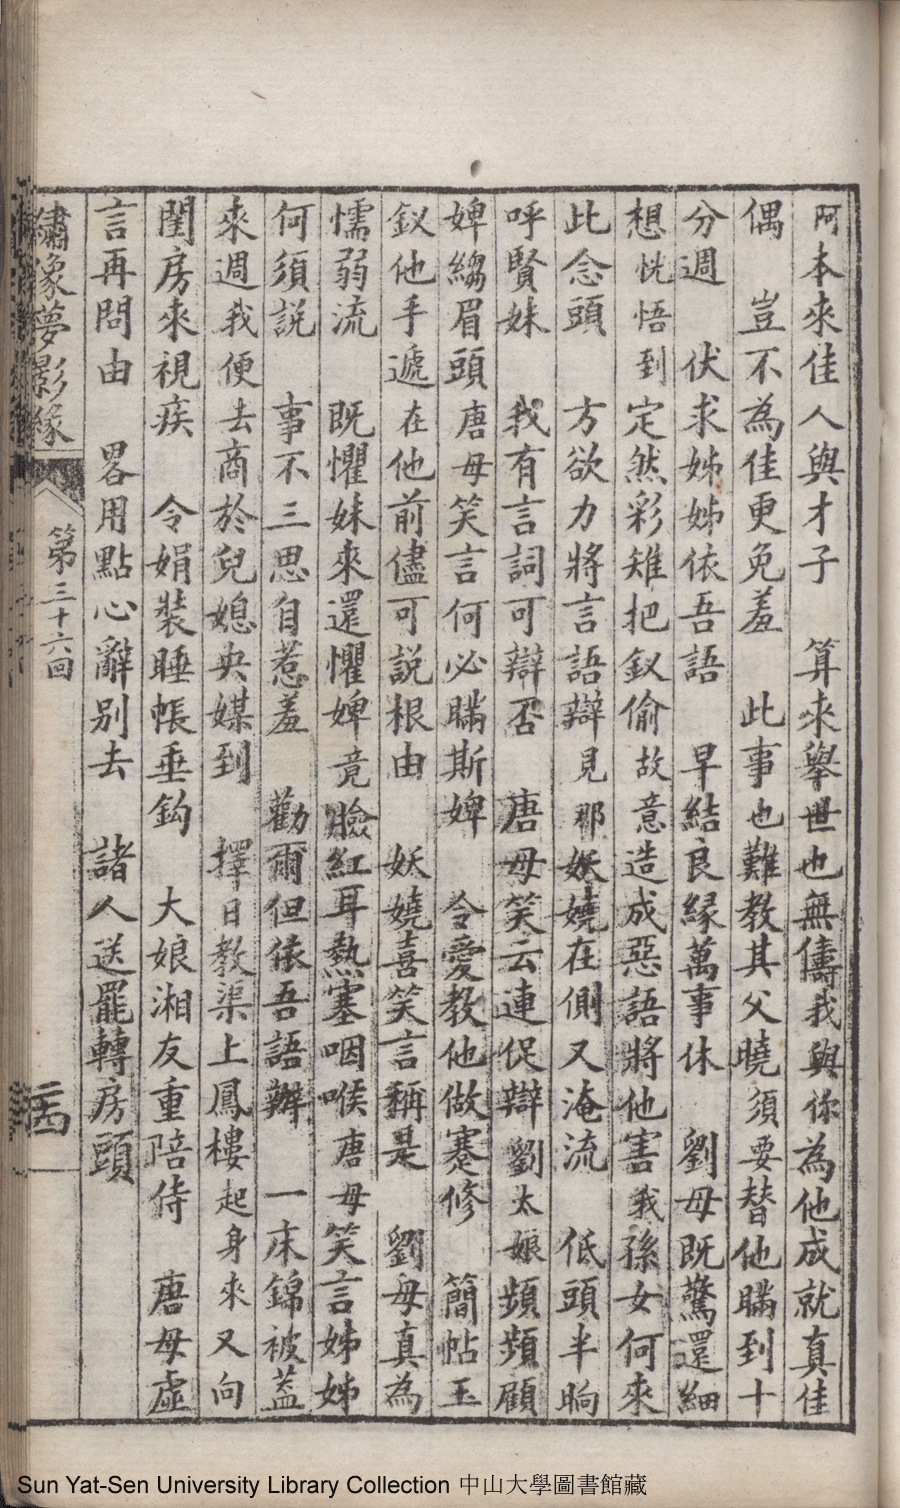 阿本來佳人與才子　算來舉世也無儔我與你為他成就真佳
偶　豈不為佳更免羞　此事也難教其父曉須要替他瞞到十
分週　伏求姊姊依吾語　早結良緣萬事休　劉母既驚還細
想恍悟到定然彩雉把釵偷故意造成惡語將他害我孫女何來
此念頭　方欲力將言語辯見那妖嬈在側又淹流　低頭半晌
呼賢妹　我有言詞可辯否　唐母笑云連促辯劉太娘頻頻顧
婢縐眉頭唐母笑言何必瞞斯婢　令愛教他做蹇修　簡帖玉
釵他手遞在他前儘可說根由　妖嬈喜笑言稱是　劉母真為
懦弱流　既懼妹來還懼婢竟臉紅耳熱塞咽喉唐母笑言姊姊
何須說　事不三思自惹羞　勸爾但依吾語辦　一床錦被蓋
來週我便去商於兒媳央媒到　擇日教渠上鳳樓起身來又向
閨房來視疾　令娟裝睡帳垂鈎　大娘湘友重陪侍　唐母虛
言再問由　畧用點心辭別去　諸人送罷轉房頭
繡像夢影緣　第三十六回